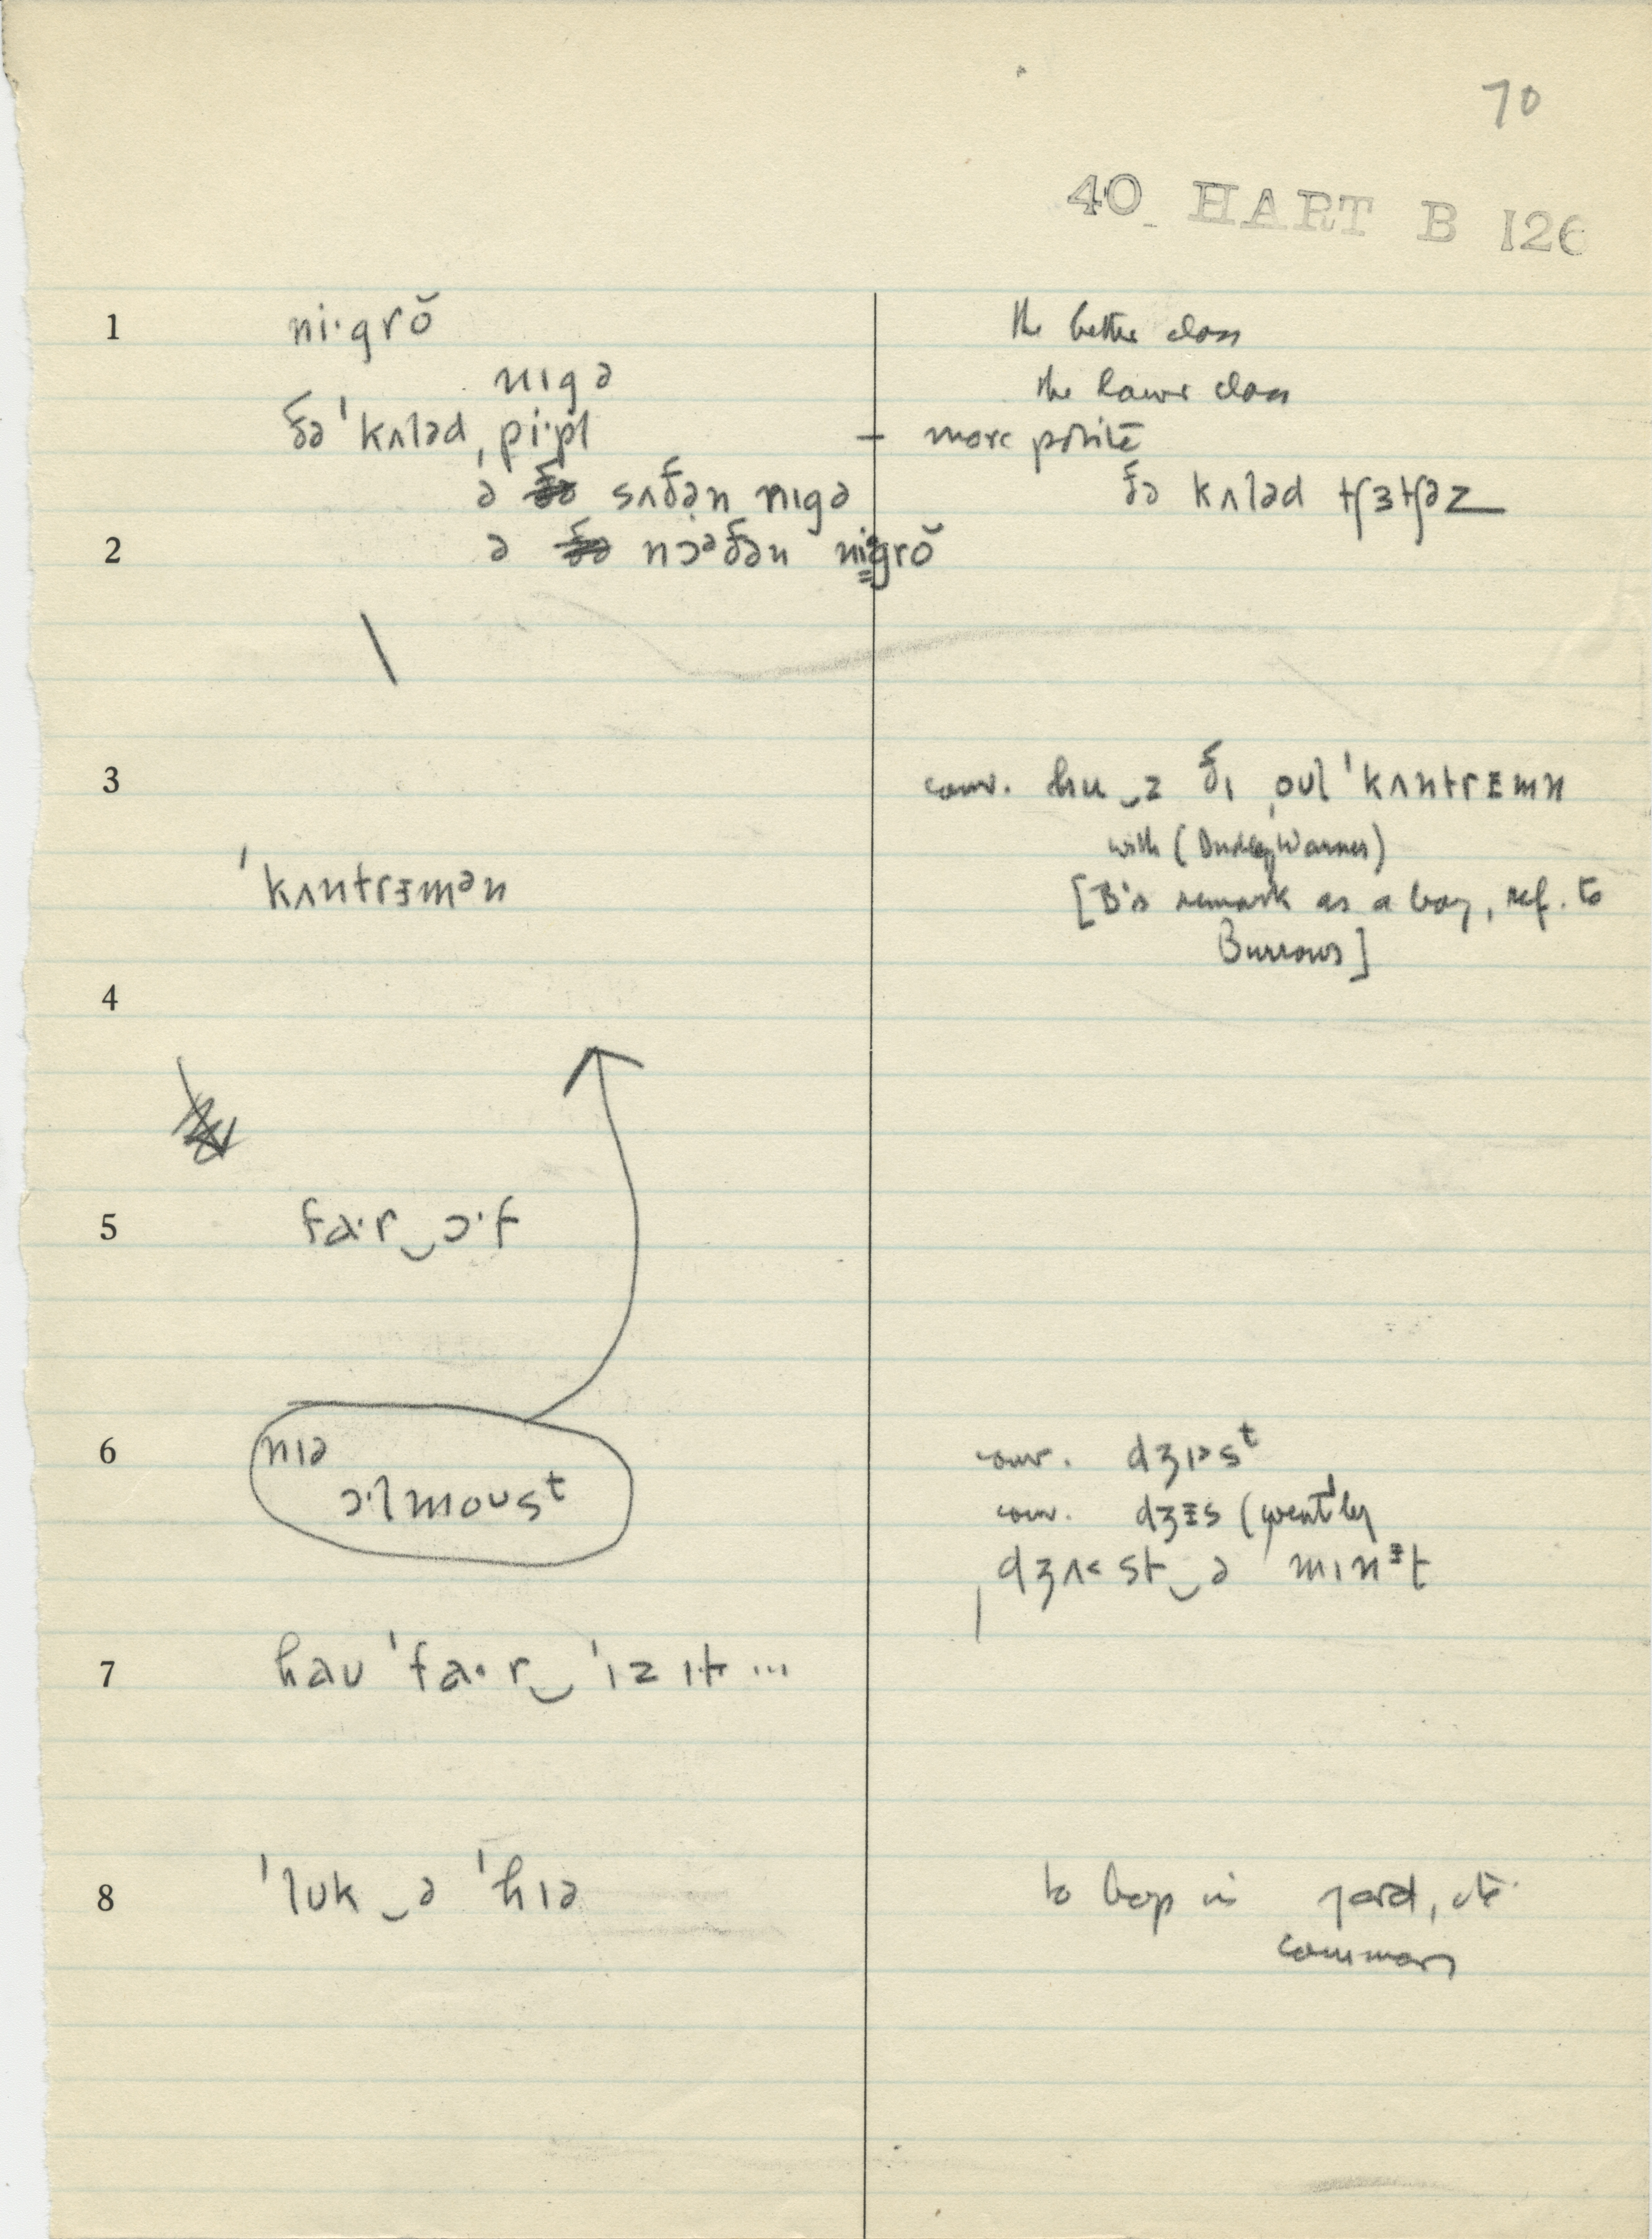 70
40 HART B 126
1 ni·grŏ the better class
nɪgə the lower class
ðə ˈkʌləd ˌpi·pl̩ — more polite
ə sʌðən nɪgə ðə kʌləd tʃɜtʃəz
2 ə nɔᵊðən ni·grŏ
3 conv. hu‿z ðɪ ˌoʊl ˈkʌntrᵻmn
with (Dudley Warner)
ˈkʌntrᵻmən [B's remark as a boy, ref. to
Burrows]
4
5 fa·r‿ɔ·f
6 nɪə conv. dʒɪ˃sᵗ
ɔ·lmoʊsᵗ conv. dʒᵻs (gently
dʒʌ˂st‿ə mɪnᵻt
7 haʊ ˈfa·r‿ˈɪz ɪt ...
8 ˈlʊk‿ə ˈhɪə to boys in yard, etc.
common